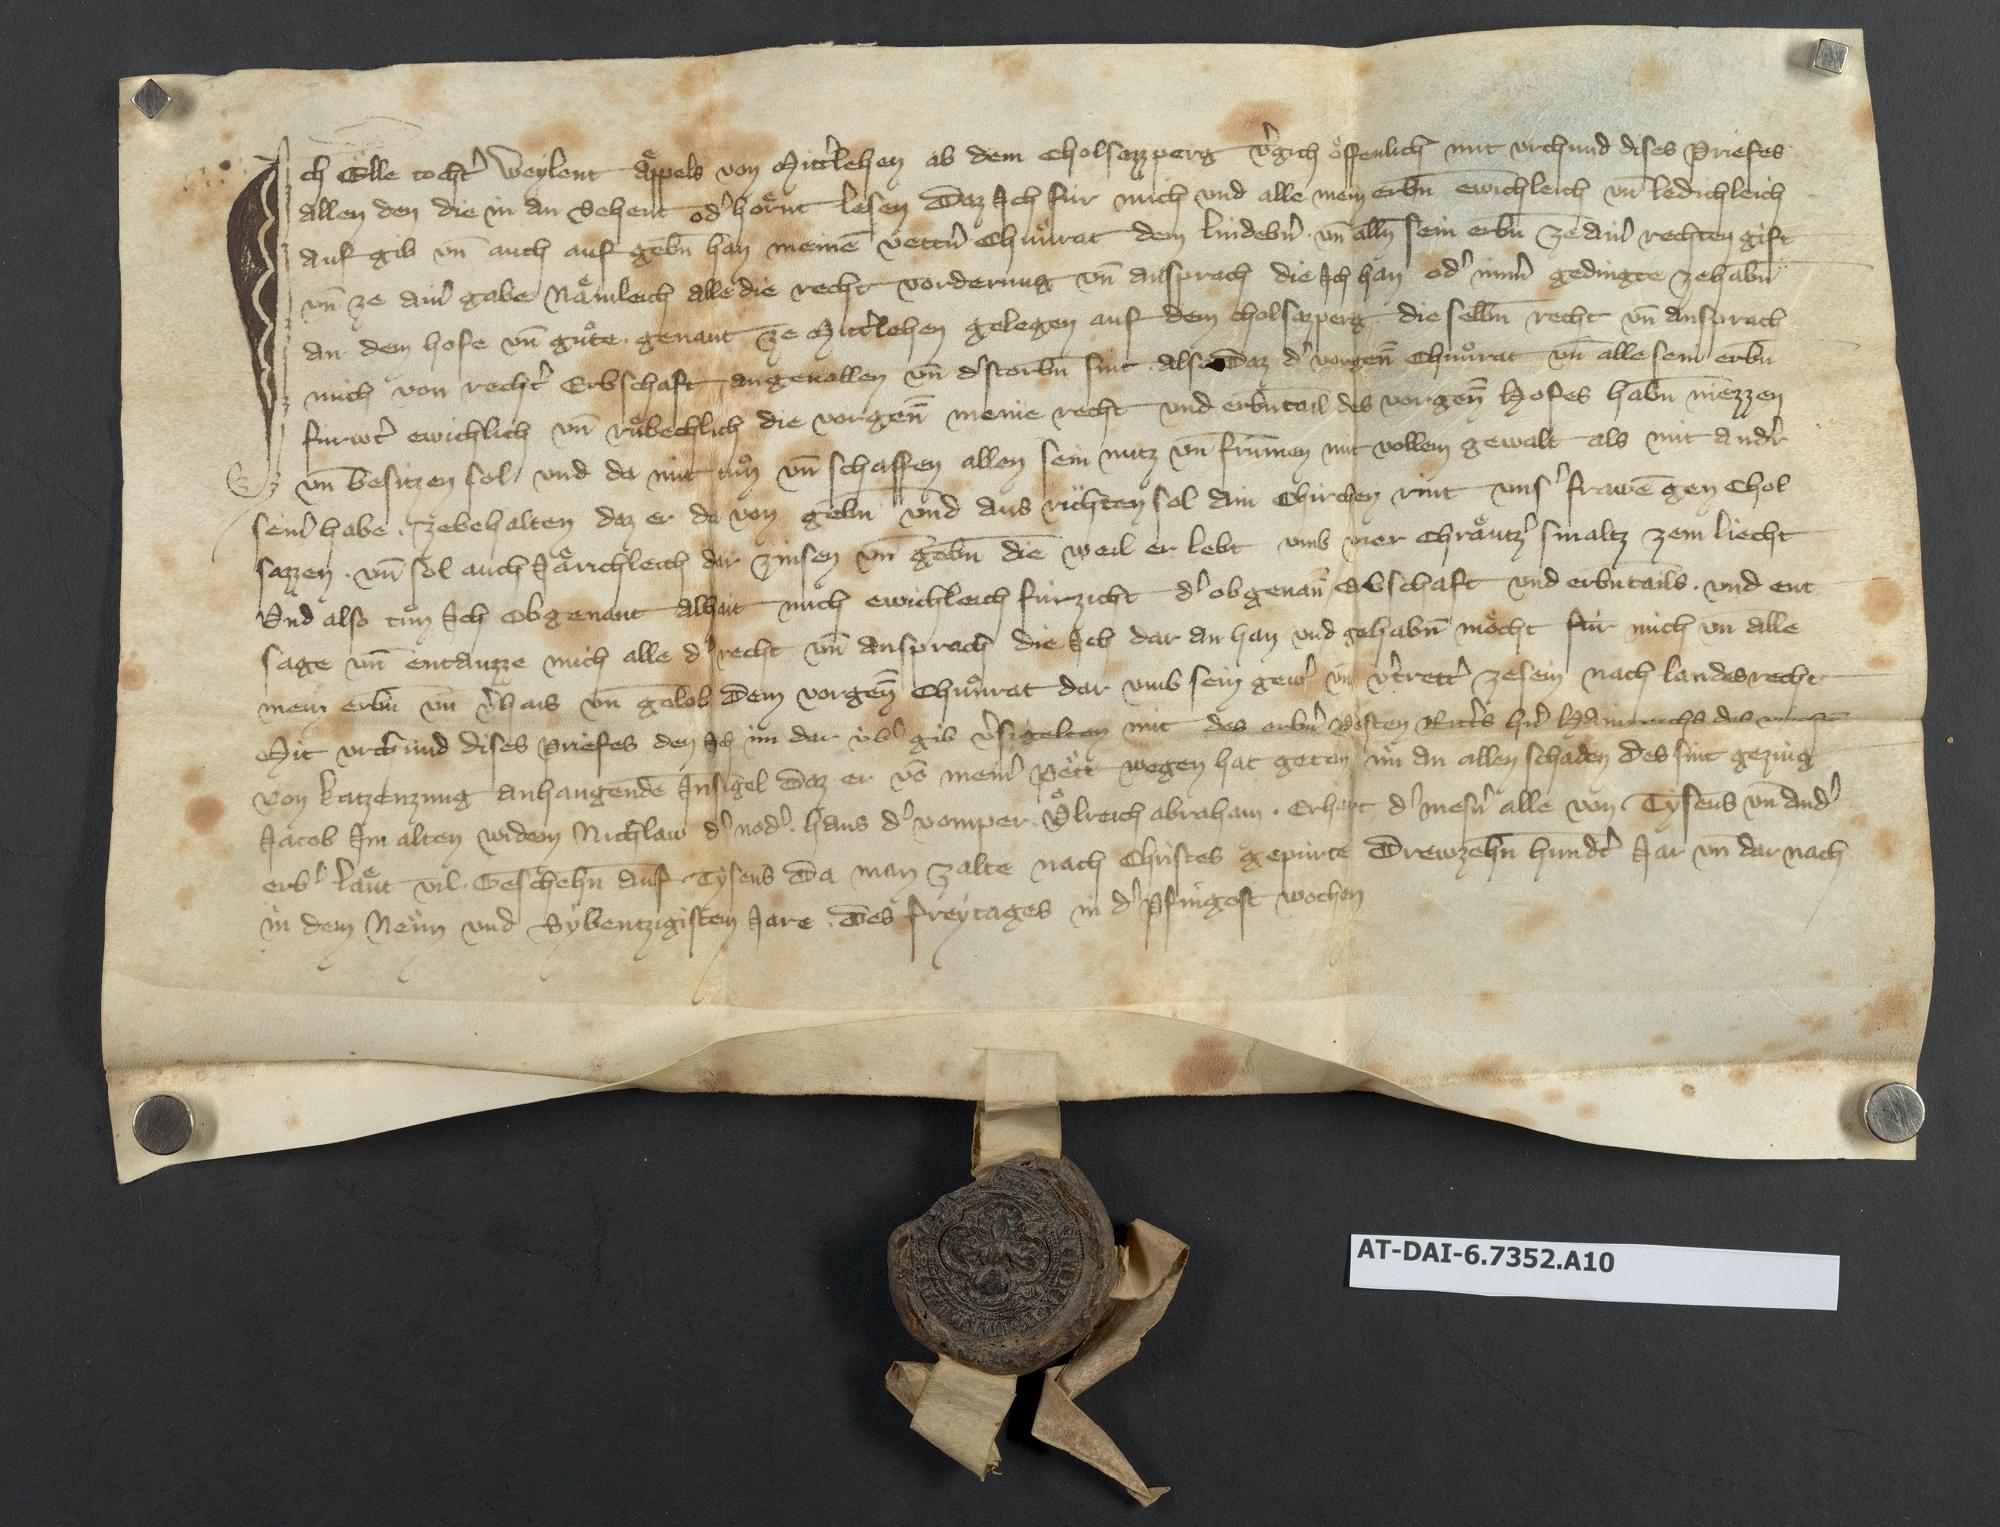 Ich Elle tocht' Weylent Aͤppels von Mitt'lehen ab dem Cholsazzperg v'gich offenlich mit vrchund dises Priefes
allen den die in an Sehent od' hoͤrnt lesen Daz Ich fur mich vnd alle mein erbn̄ ewichleich vn̄ ledichleich
auf gib vn̄ auch auf gebn̄ han meinē vett'n Chuͦnrat dem lindebn'. vn̄ alln̄ sein erbn̄ ze ain' rechten gift
vn̄ ze ain' gabe Naͤmleich alle die recht vorderung vn̄ ansprach die Ich han od' imm' gedingte zehabn̄
an dem hofe vn̄ guͦte. genant ze Mitt'lehen gelegen auf dem cholsazperg. die selbn̄ recht vn̄ ansprach
mich von recht' Erbschaft angeuallen vn̄ d'storbn̄ sint. also Daz d' vorgen̄ Chuͦnrat vn̄ alle sein erbn̄
furwt' ewichlich vn̄ ruͤbechlich die vorgen̄ meine recht vnd erbn̄tail des vorgen̄ Hofes habn̄ niezzen
vn̄ besitzen sol vnd da mit tuͦn vn̄ schaffen allen sein nutz vn̄ frumen mit vollem gewalt als mit and'r
sein' habe. zebehalten daz er da von gebn̄ vnd aus richten sol ain Chirchen rint vns' frawē gen Chol
sazzen. vn̄ sol auch Jaͤrichleich dar zinsen vn̄ gebn̄ die weil er lebt vmb vier Chraͤutz' smaltz zem liecht
Vnd also tuͦn Ich Obgenant alhait mich ewichleich furzicht d' obgenan̄ Erbschaft vnd erbn̄tails. vnd ent
sage vn̄ entauzze mich alle d' recht vn̄ ansprach die Ich dar an han vnd gehabn̄ moͤcht fur mich vn̄ alle
mein erbn̄ vn̄ v'hais vn̄ gelob Dem vorgen̄ Chuͦnrat dar vmb sein gew' vn̄ v'trett' zesein nach landesrecht
Mit vrchund dises Priefes den Ich im dar vb' gib v'sigelten mit des erbn' Vesten Ritt's hn'
von katzenzung anhangendē Insigel Daz er vō mein' Pett wegen hat getan im an allen schaden des sint geziug
Jacob Im alten widem Nichlaw d' nod'. hans d' vomper. Vͦlreich abraham. Erhart d' mesn' alle von Tysens vn̄ and'
erb' laͤut vil. Geschehn̄ auf Tysens Da man zalte nach Christes gepurte Drewzehn̄ hundt' Jar vn̄ dar nach
in dem Neun vnd Sybentzigistem Jare. Des freytages in d' Pfingost wochen
AT-DAI-6.7352.A10